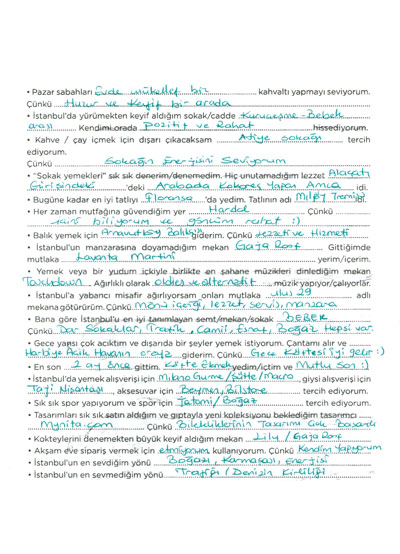 • Pazar sabahları Evde mükellef bir kahvaltı yapmayı seviyorum.
Çünkü Huzur ve Keyif bir arada
• İstanbul'da yürümekten keyif aldığım sokak/cadde Kuruçeşme-Bebek
arası Kendimi orada Pozitif ve Rahat hissediyorum.
• Kahve / çay içmek için dışarı çıkacaksam Atiye sokağı tercih
ediyorum.
Çünkü Sokağın Enerjisini Seviyorum
• "Sokak yemekleri" sık sık denerim/denemedim. Hiç unutamadığım lezzet Alaçatı
Girişindeki 'deki Arabada Kokoreç Yapan Amca idi.
• Bugüne kadar en iyi tatlıyı Floransa 'da yedim. Tatlının adı idi.
• Her zaman mutfağına güvendiğim yer Hardal Çünkü
biliyorum ve gönlüm rahat :)
• Balık yemek için Arnavutköy Balıkçısı giderim. Çünkü Lezzeti ve Hizmeti
• İstanbul'un manzarasına doyamadığım mekan Gaja Roof Gittiğimde
mutlaka Lavanta Martini yerim/içerim.
• Yemek veya bir yudum içkiyle birlikte en şahane müzikleri dinlediğim mekan
Touchdown Ağırlıklı olarak oldies ve alternatif müzik yapıyor/çalıyorlar.
• İstanbul'a yabancı misafir ağırlıyorsam onları mutlaka ulus 29 adlı
mekana götürürüm. Çünkü Menü içeriği, lezzet, servis, manzara
• Bana göre İstanbul'u en iyi tanımlayan semt/mekan/sokak BEBEK
Çünkü Dar Sokaklar, Trafik, Cami, Esnaf, Boğaz Hepsi var.
• Gece yarısı çok acıktım ve dışarıda bir şeyler yemek istiyorum. Çantamı alır ve
Harbiye Açık Havanın oraya giderim. Çünkü Gece Köftesi iyi gelir :)
• En son 2 ay önce gittim. Köfte Ekmek yedim/içtim ve Mutlu Son :)
• İstanbul'da yemek alışverişi için Milano Gurme/Sütte/Macro, giysi alışverişi için
Taji Nişantaşı, aksesuvar için Beymen, Bilstore tercih ediyorum.
• Sık sık spor yapıyorum ve spor için Jatomi/Boğaz tercih ediyorum.
• Tasarımları sık sık satın aldığım ve gıptayla yeni koleksiyonu beklediğim tasarımcı
Mynita.com Çünkü Bilekliklerinin Tasarımı Çok Başarılı
• Kokteylerini denemekten büyük keyif aldığım mekan Lily / Gaja Roof
• Akşam eve sipariş vermek için etmiyorum kullanıyorum. Çünkü Kendim Yapıyorum
• İstanbul'un en sevdiğim yönü Boğazı, Karmaşası, Enerjisi
• İstanbul'un en sevmediğim yönü Trafiği / Denizin Kirliliği